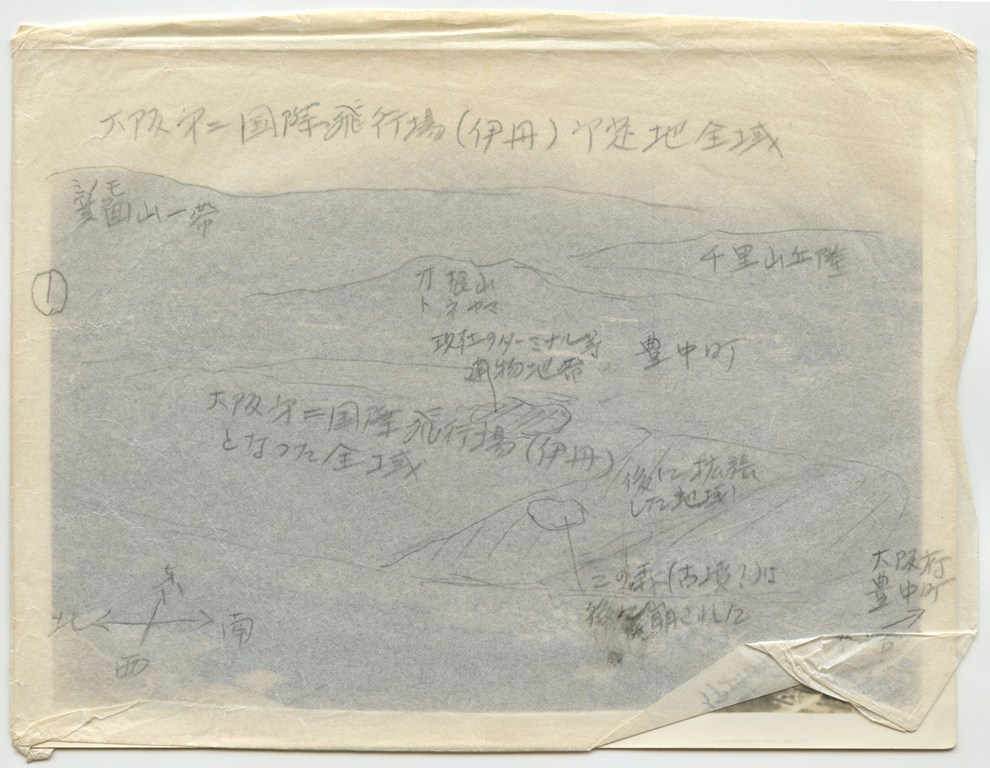 大阪第二国際飛行場(伊丹)予定地全域
ミノモ
箕面山一帯
千里山丘陵
①
刀根山
トネヤマ
現在のターミナル等
建物地帯
豊中町
大阪第二国際飛行場(伊丹)
となった全域
後に拡張
した地域
この森(古墳!)は
後に崩された
大阪府
豊中町
東
北
南
西